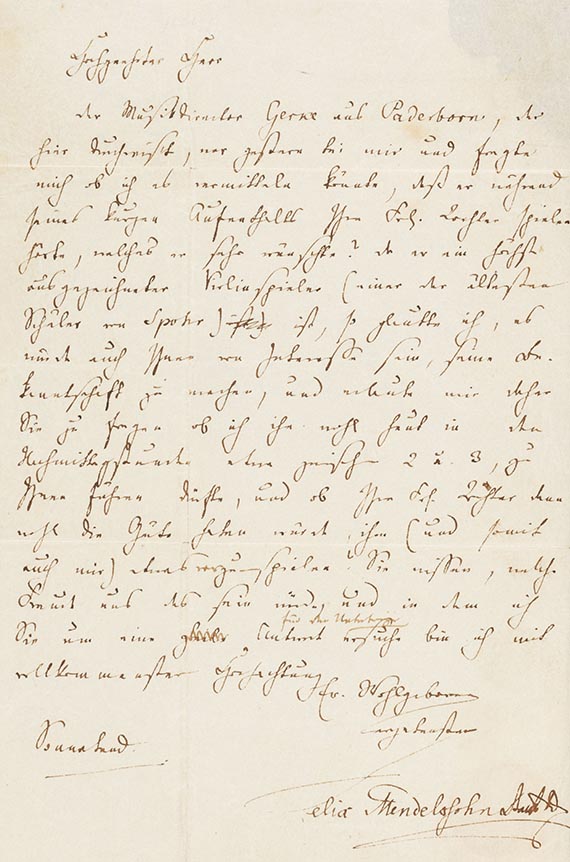 Hochgeehrter Herr
der Musikdirector Gerke aus Paderborn, der
hier durchreist, war gestern bei mir und fragte
mich ob ich es vermitteln könnte, daß er während
seines kurzen Aufenthalts Ihre Frl. Tochter spielen
hörte, welches er sehr wünschte? da er ein höchst
ausgezeichneter Violinspieler (einer der ältesten
Schüler von Spohr) ist, so glaubte ich, es
würde auch Ihnen von Interesse sein, seine Be-
kanntschaft zu machen, und erlaube mir daher
Sie zu fragen ob ich ihn wohl heut in den
Nachmittagsstunden etwa zwischen 2 u. 3, zu
Ihnen führen dürfte, und ob Ihre Frl. Tochter dann
wohl die Güte haben würde, ihm (und somit
auch mir) etwas vorzuspielen? Sie wissen, welche
Freude uns das sein würde, und in dem ich
Sie um eine Antwort für den Ueberbringer ersuche bin ich mit
vollkommenster Hochachtung
Ew. Wohlgeboren
ergebenster
Sonnabend.
Felix Mendelssohn Bartholdy